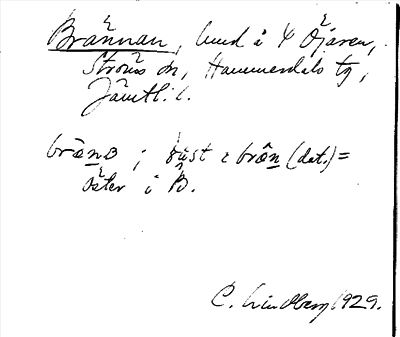 Brännan, lund i Y Öjaren,
Ströms sn, Hammerdals tg,
Jämtl. l.
brænɷ ; öust ɩ brôn (dat.) =
öster i B.
C. Lindberg 1929.